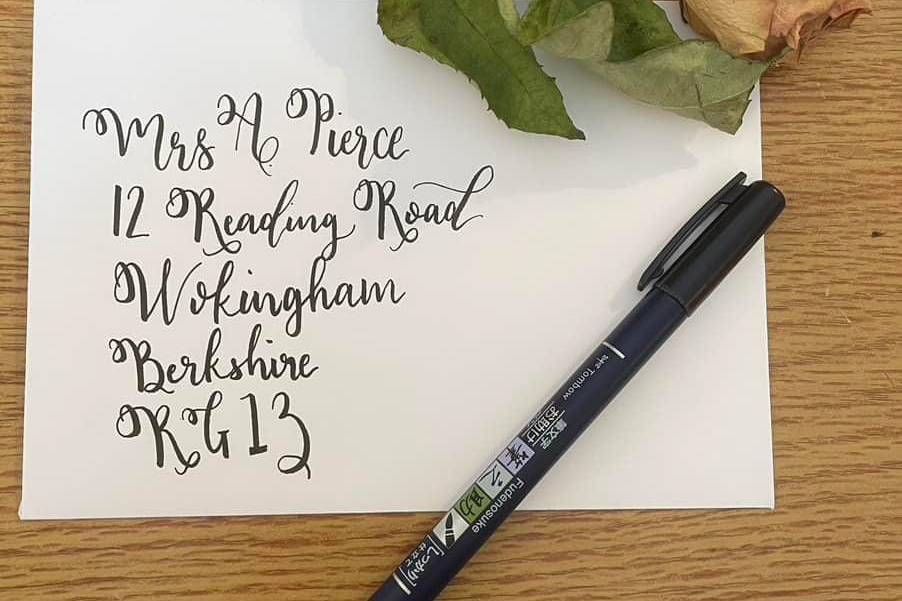 Mrs A Pierce
12 Reading Road
Wokingham
Berkshire
RG13
Tombow
筆之助
Fudenosuke
しっかり仕立て